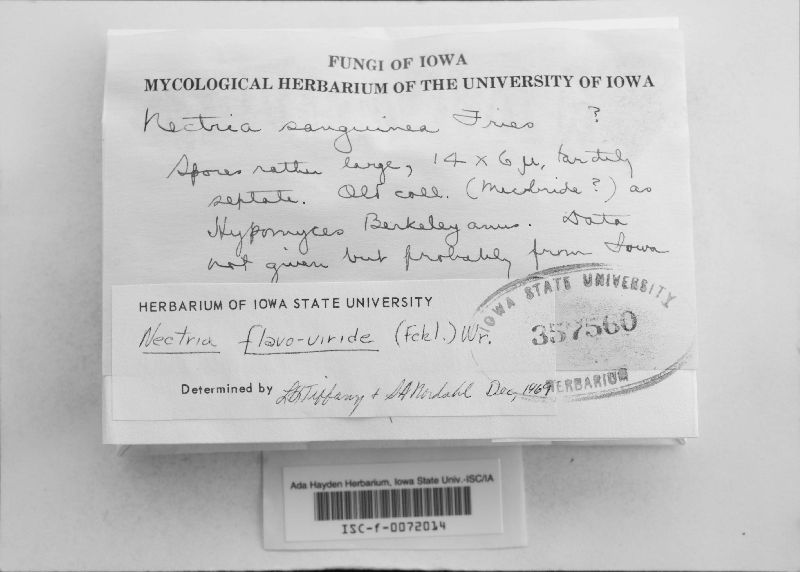 FUNGI OF IOWA
MYCOLOGICAL HERBARIUM OF THE UNIVERSITY OF IOWA
Nectria sanguinea Fries ?
Spores rather large, 14 x 6 µ, tardily
septate. Old coll. (Macbride?) as
Hypomyces Berkeleyanus. Data
not given but probably from Iowa
IOWA STATE UNIVERSITY
357560
HERBARIUM
HERBARIUM OF IOWA STATE UNIVERSITY
Nectria flavo-viride (Fckl.) Wr.
Determined by LH Tiffany + SA Nordahl Dec, 1969
Ada Hayden Herbarium, Iowa State Univ.-ISC/IA
ISC-f-0072014